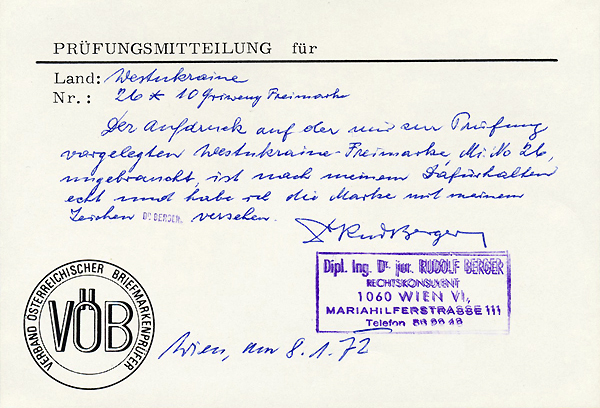 PRÜFUNGSMITTEILUNG für
Land: Westukraine
Nr.: 26 * 10 Griweny Freimarke
Der Aufdruck auf der mir zur Prüfung
vorgelegten Westukraine-Freimarke, Mi. No 26,
ungebraucht, ist nach meinem Dafürhalten
echt und habe ich die Marke mit meinem
Zeichen DR BERGER. versehen.
Dr Rud. Berger
Dipl. Ing. Dr. jur. RUDOLF BERGER
RECHTSKONSULENT
1060 WIEN VI.,
MARIAHILFERSTRASSE 111
Telefon
VERBAND ÖSTERREICHISCHER BRIEFMARKENPRÜFER
VÖB
Wien, am 8.1.72